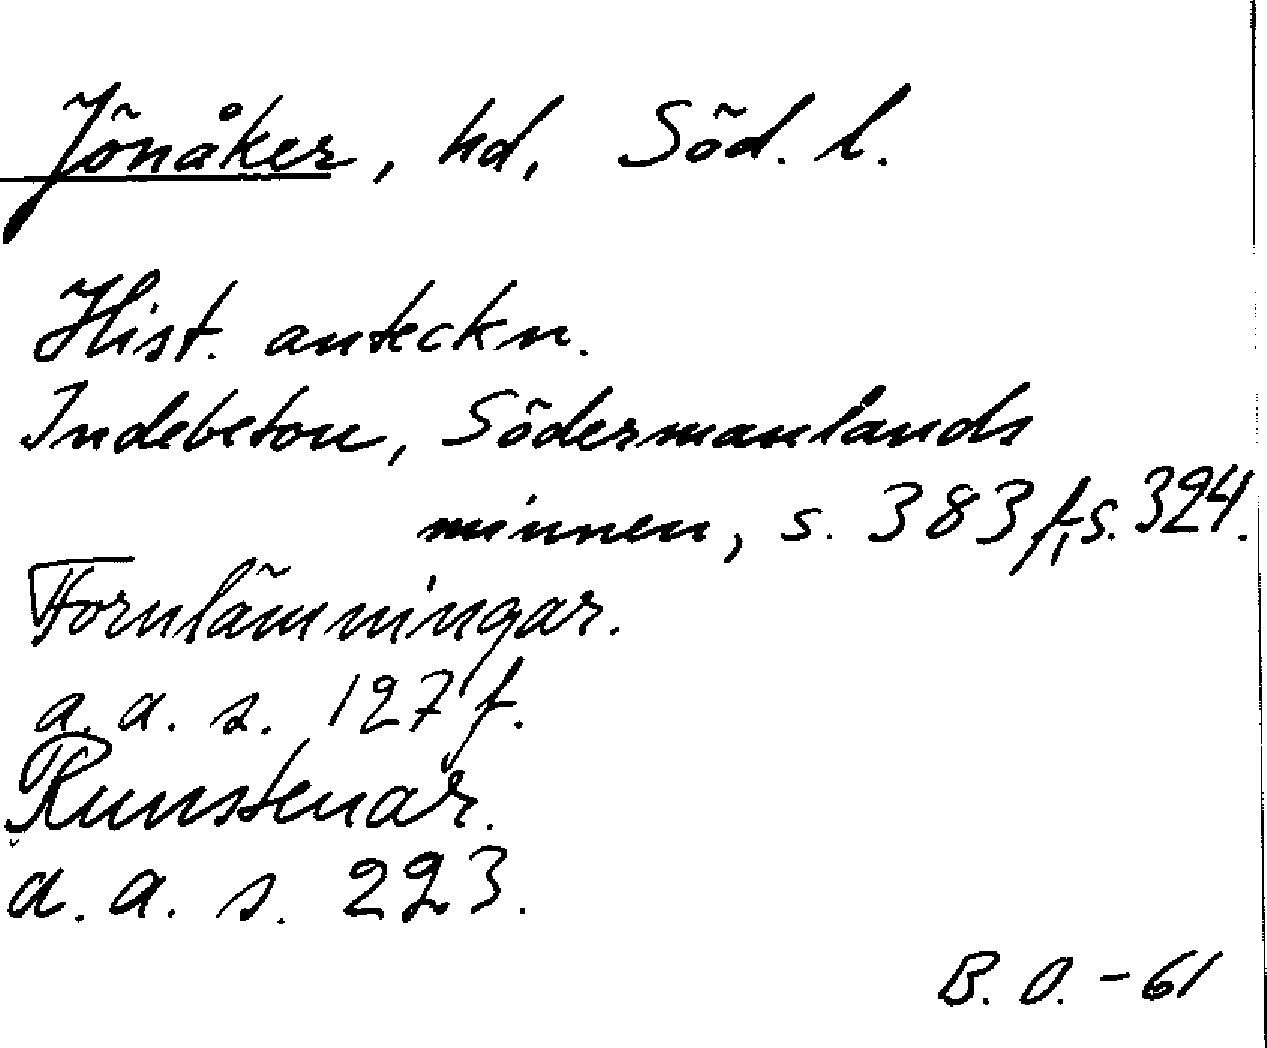 Jönåker, hd, Söd. l.
Hist. anteckn.
Indebetou, Södermanlands
minnen, s. 383 f, s. 324.
Fornlämningar.
a. a. s. 127 f.
Runstenar.
a. a. s. 223.
B. O. - 61